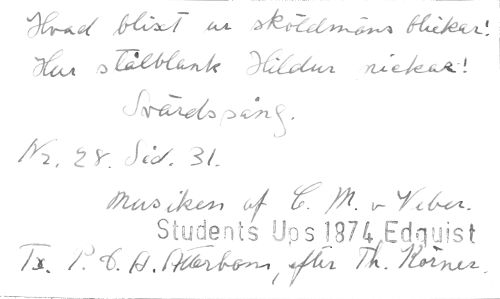 Hvad blixt ur sköldmöns blickar!
Hur stålblank Hildur nickar!
Svärdssång.
Nr. 28. Sid. 31.
Musiken af C. M. v Weber.
Students Ups 1874, Edquist
Tx. P. D. A. Atterbom, efter Th. Körner.